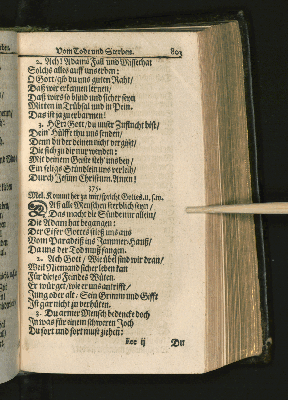 Vom Tod und Sterben. 803
2. Ach! Adams Fall und Missethat
Solchs alles auff uns erben:
O Gott/gib du uns guten Raht/
Daß wir erkennen lernen/
Daß wir so blind und sicher seyn
Mitten in Trübsal und in Pein.
Das ist ja zu erbarmen!
3. HErr Gott/du unser Zuflucht bist/
Dein' Hülffe thu uns senden/
Denn du der deinen nicht vergißt/
Die sich zu dir nur wenden:
Mit deinem Geiste steh uns bey/
Ein seligs Stündlein uns verleih/
Durch JEsum Christum. Amen!
375.
Mel. Kommt her zu mir/spricht Gottes. u. s.w.
DAß alle Menschen sterblich seyn/
Das macht die Sünde nur allein/
Die Adam hat begangen:
Der Eifer Gottes stieß uns aus
Vom Paradeiß ins Jammer-Hauß/
Da uns der Tod muß fangen.
2. Ach Gott/ Wie übel sind wir dran/
Weil Niemand sicher leben kan
Für dieses Feindes Wüten.
Er würget/wie er uns antrifft/
Jung oder alt: Sein Grimm und Gifft
Ist gar nicht zu verhüten.
3. Du armer Mensch bedencke doch
In was für einem schweren Joch
Du fort und fort must ziehen:
Eee ij Du